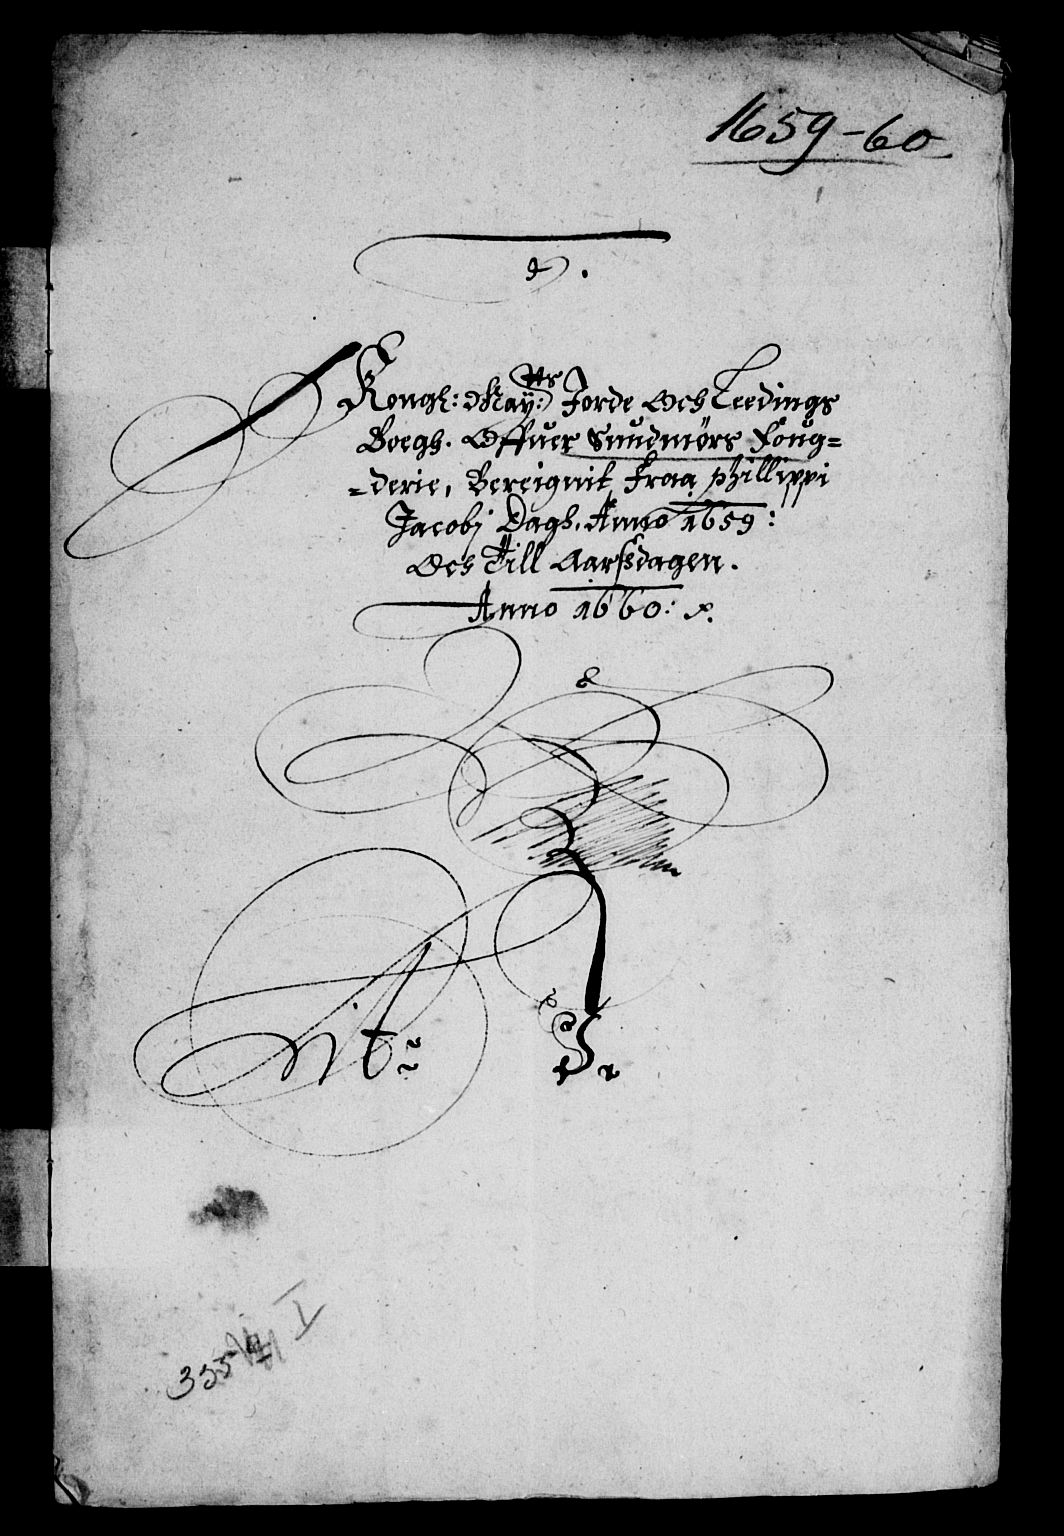 1659-60
Kongl: May:tts Jorde Och Leedings
Boegh. Offuer Sundmørs Foug=
=derie, Bereignit fraa phillippi
Jacobj Dagh. Anno 1659:
Och Till Aarsdagen.
Anno 1660:
Lit: J.
355
I